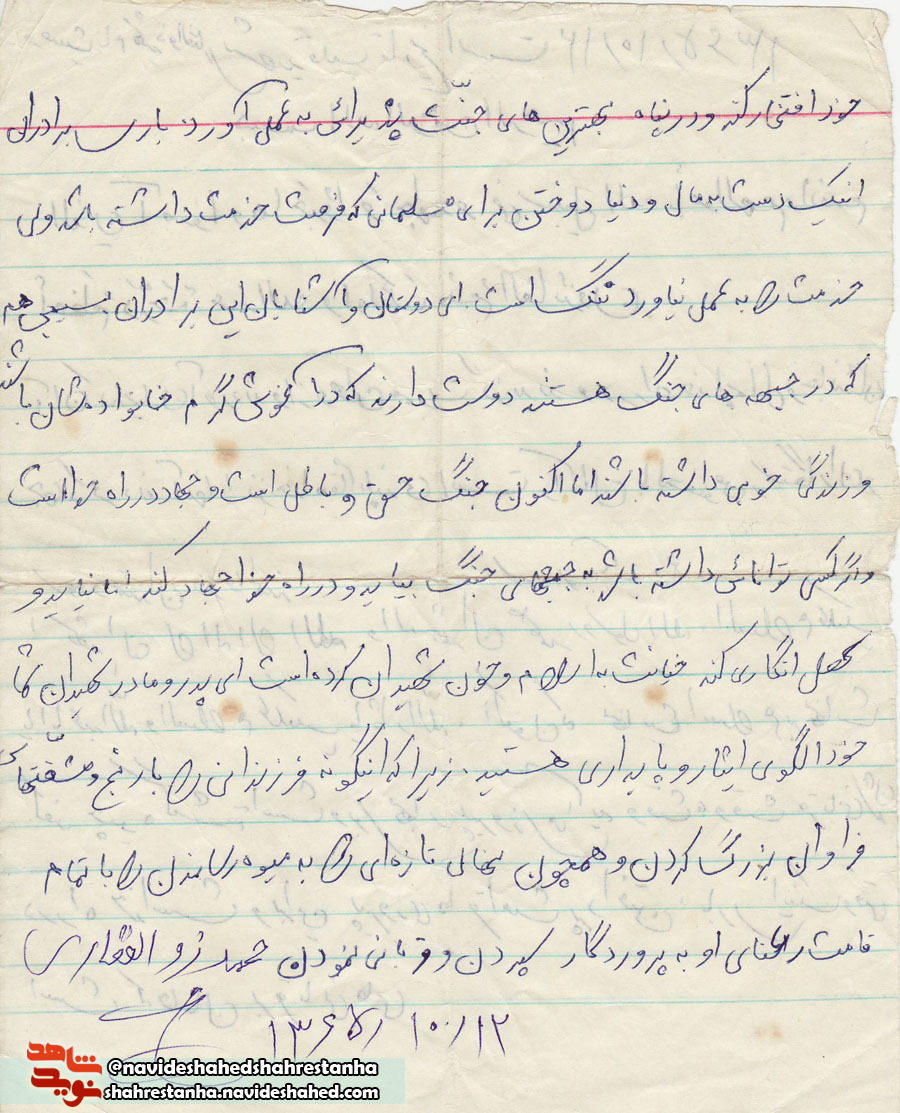 خود افتخار کند و در پناه بهترین های جنّت پذیرائی به عمل آورد. باری برادران
اینک دست به مال و دنیا دوختن برای مسلمانی که فرصت خدمت داشته باشد ولی
خدمت را به عمل نیاورد ننگ است. ای دوستان و آشنایان این برادران بسیجی هم
که در جبهه های جنگ هستند دوست دارند که در آغوش گرم خانواده شان باشند
و زندگی خوبی داشته باشند اما اکنون جنگ حق و باطل است و جهاد در راه خداست
و اگر کسی توانائی داشته باشد به جبههای جنگ بیاید و در راه خدا جهاد کند اما نیاید و
سهل انگاری کند خیانت به اسلام و خون شهیدان کرده است ای پدر و مادر شهیدان شما
خود الگوی ایثار و پایداری هستید. زیرا که اینگونه فرزندانی را با رنج و مشقّتهای
فراوان بزرگ کردن و همچون نهالی تازه ای را به میوه رساندن را با تمام
قامت رعنای او به پروردگار سپردن و قربانی نمودن محمد ذوالفقاری
۱۳۶۵/۱۰/۱۲
شاهد
نوید
@navideshahedshahrestanha
shahrestanha.navideshahed.com